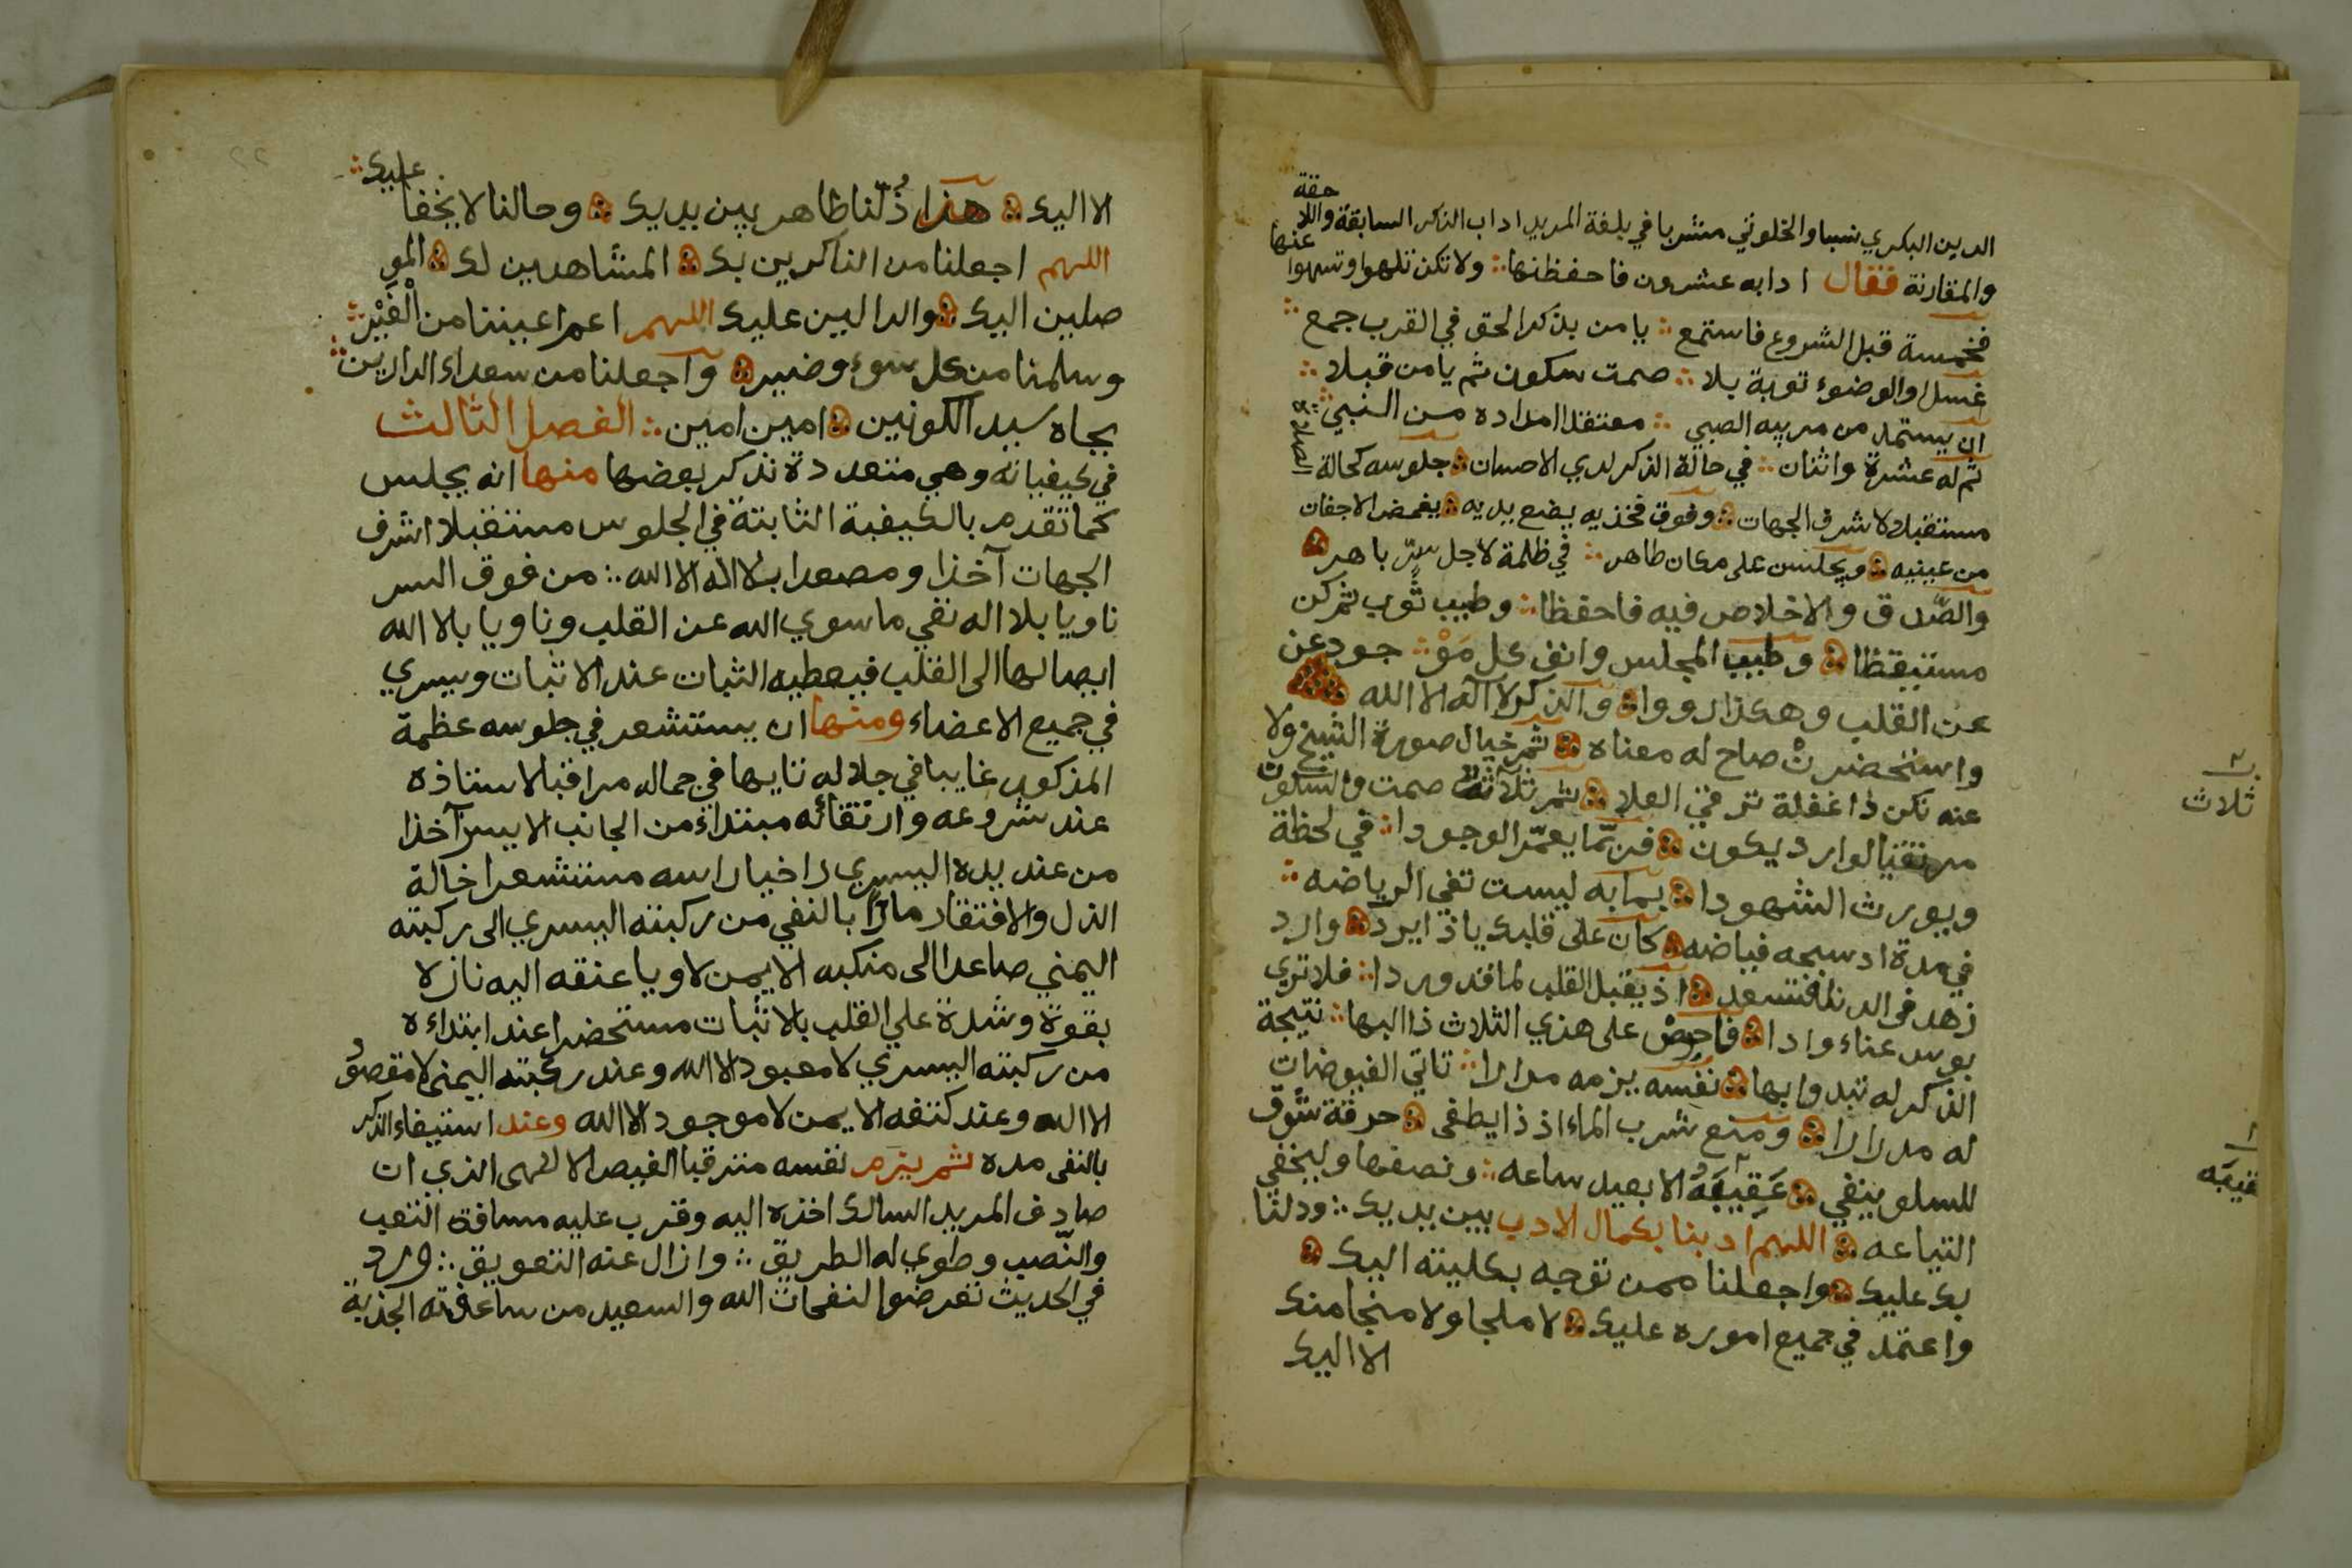 الدين البكري نسبا والخلوتي مشربا في بلغة المريد اداب الذكر السابقة واللاحقة
والمقارنة فقال ادابه عشرون فاحفظنها ولا تكن تلهوا وتسهوا عنها
فخمسة قبل الشروع فاستمع يا من بذكر الحق في القرب جمع
غسل او الوضوء توبة بلا صمت سكون ثم يا من قبلا
ان يستمد من مربيه الصبي معتقدا امداده من النبي
ثم له عشرة واثنان في حالة الذكر لدي الاحسان جلوسه كحالة الصلاة
مستقبلا لاشرف الجهات وفوق فخذيه يضع يديه يغمض الاجفان
من عينيه ويجلسن على مكان طاهر في ظلمة لاجل سرّ باهر
والصّدق والاخلاص فيه فاحفظا وطيب ثوب ثم كن
مستيقظا وطيب المجلس وانف كل مَوْجود عن
عن القلب وهكذا رووا والذكر لا اله الا الله
واستحضرنْ صاح له معناه ثم خيال صورة الشيخ ولا
عنه تكن ذا غفلة ترقي العلا ثم ثلاثة صمت والسكون
مرتقبا لوارد يكون فربّما يعمّر الوجودا في لحظة
ويورث الشهودا بما به ليست تفي الرياضه
في مدة اد سحه فياضه كان على قلبك يا ذا يرد وارد
زهد في الدنا فتسعد اذ يقبل القلب لما قد وردا فلا تري
بوس عناء وادا فاحرصْ على هذي الثلاث ذا البها نتيجة
الذكر له تبدوا بها نفسه يزمه مرارا تاتي الفيوضات
له مدرارا ومنع شرب الماء اذ ذا يطفى حرقة شوق
للسلو ينفي عَقِيبَهُ الا بعيد ساعه ونصفها وليخفي
التياعه اللهم ادبنا بكمال الادب بين يديك ودلنا
بك عليك واجعلنا ممن توجه بكليته اليك
واعتمد في جميع اموره عليك لا ملجا ولا منجا منك
الا اليك
ثلاث
الا اليك هذا ذُلّنا ظاهر بين يديك وحالنا لا يخفا عليك
اللهم اجعلنا من الذاكرين بك المشاهدين لك المو
صلين اليك والدالين عليك اللهم اعم اعيننا من الْغَيْر
وسلمنا من كل سوء وضير واجعلنا من سعداء الدارين
بجاه سيد الكونين امين امين الفصل الثالث
في كيفياته وهي متعددة نذكر بعضها منها انه يجلس
كما تقدم بالكيفية الثابتة في الجلوس مستقبلا اشرف
الجهات آخذا ومصعدا بلا اله الا الله من فوق السر
ناويا بلا اله نفي ما سوي الله عن القلب وناويا بالا الله
ايصالها الى القلب فيعطيه الثبات عند الاثبات ويسري
في جميع الاعضاء ومنها ان يستشعر في جلوسه عظمة
المذكور غايبا في جلاله تايها في جماله مراقبا لاستاذه
عند شروعه وارتقائه مبتداء من الجانب الايسر آخذا
من عند يده اليسري راخيا راسه مستشعرا حالة
الذل والافتقار مارّا بالنفي من ركبته اليسري الى ركبته
اليمني صاعدا الى منكبه الايمن لاويا عنقه اليه نازلا
بقوة وشدة علي القلب بالاثبات مستحضرا عند ابتداءه
من ركبته اليسري لا معبود الا الله وعند ركبته اليمنى لا مقصود
الا الله وعند كتفه الايمن لا موجود الا الله وعند استيفاء الذكر
بالنفى مده ثم يزم نفسه مترقبا الفيض الالهى الذي ان
صادف المريد السالك اخذه اليه وقرب عليه مسافة التعب
والنّصب وطوي له الطريق وازال عنه التعويق ورد
في الحديث تعرضوا لنفحات الله والسعيد من ساعفته الجذبة